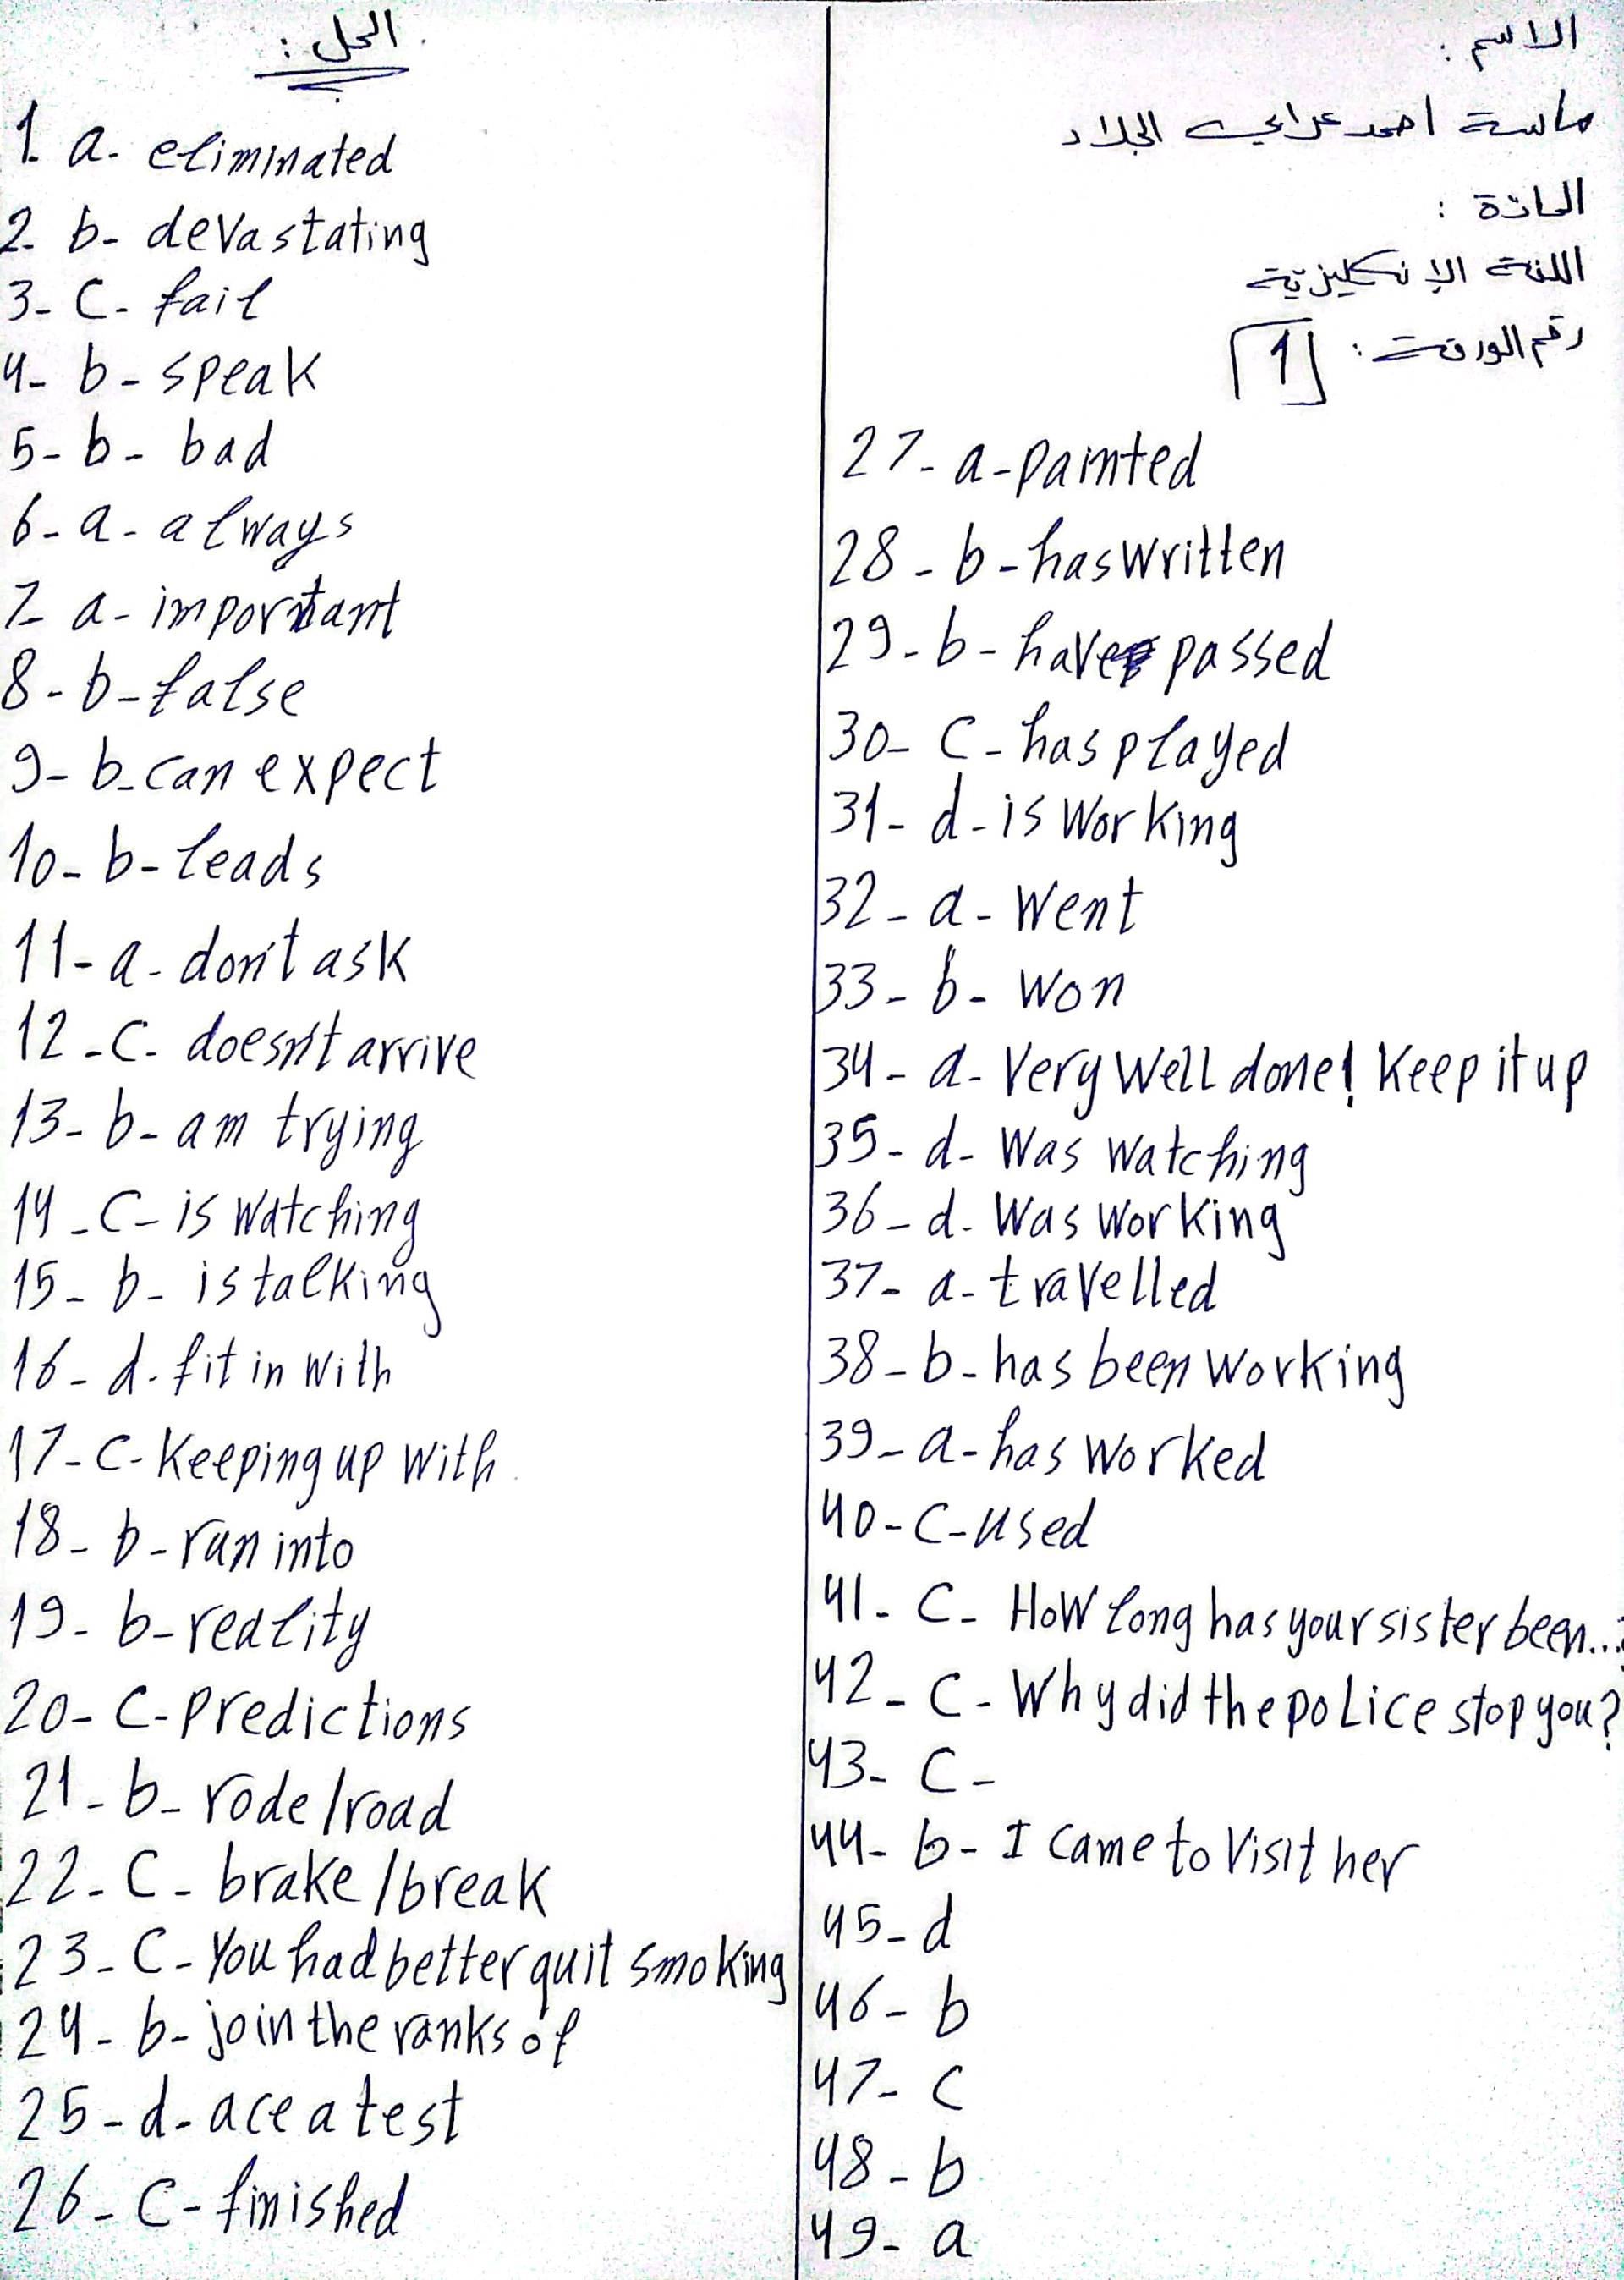 الاسم :
ماسة احمد عرابي الجلاد
المادة :
اللغة الإنكليزية
رقم الورقة : 1
الحل :
1. a. eliminated
2. b- devastating
3- C- fail
4- b- speak
5- b- bad
6- a- always
7- a- important
8- b- false
9- b- can expect
10- b- leads
11- a- don't ask
12- C- doesn't arrive
13- b- am trying
14- C- is watching
15- b- is talking
16- d- fit in with
17- C- Keeping up with
18- b- run into
19- b- reality
20- C- Predictions
21- b- rode/road
22- C- brake/break
23- C- You had better quit smoking
24- b- join the ranks of
25- d- ace a test
26- C- finished
27- a- painted
28- b- has written
29- b- have passed
30- C- has played
31- d- is working
32- a- went
33- b- won
34- a- Very well done! Keep it up
35- d- Was watching
36- d- Was working
37- a- travelled
38- b- has been working
39- a- has worked
40- C- used
41- C- How long has your sister been...
42- C- Why did the police stop you?
43- C-
44- b- I came to visit her
45- d
46- b
47- C
48- b
49- a